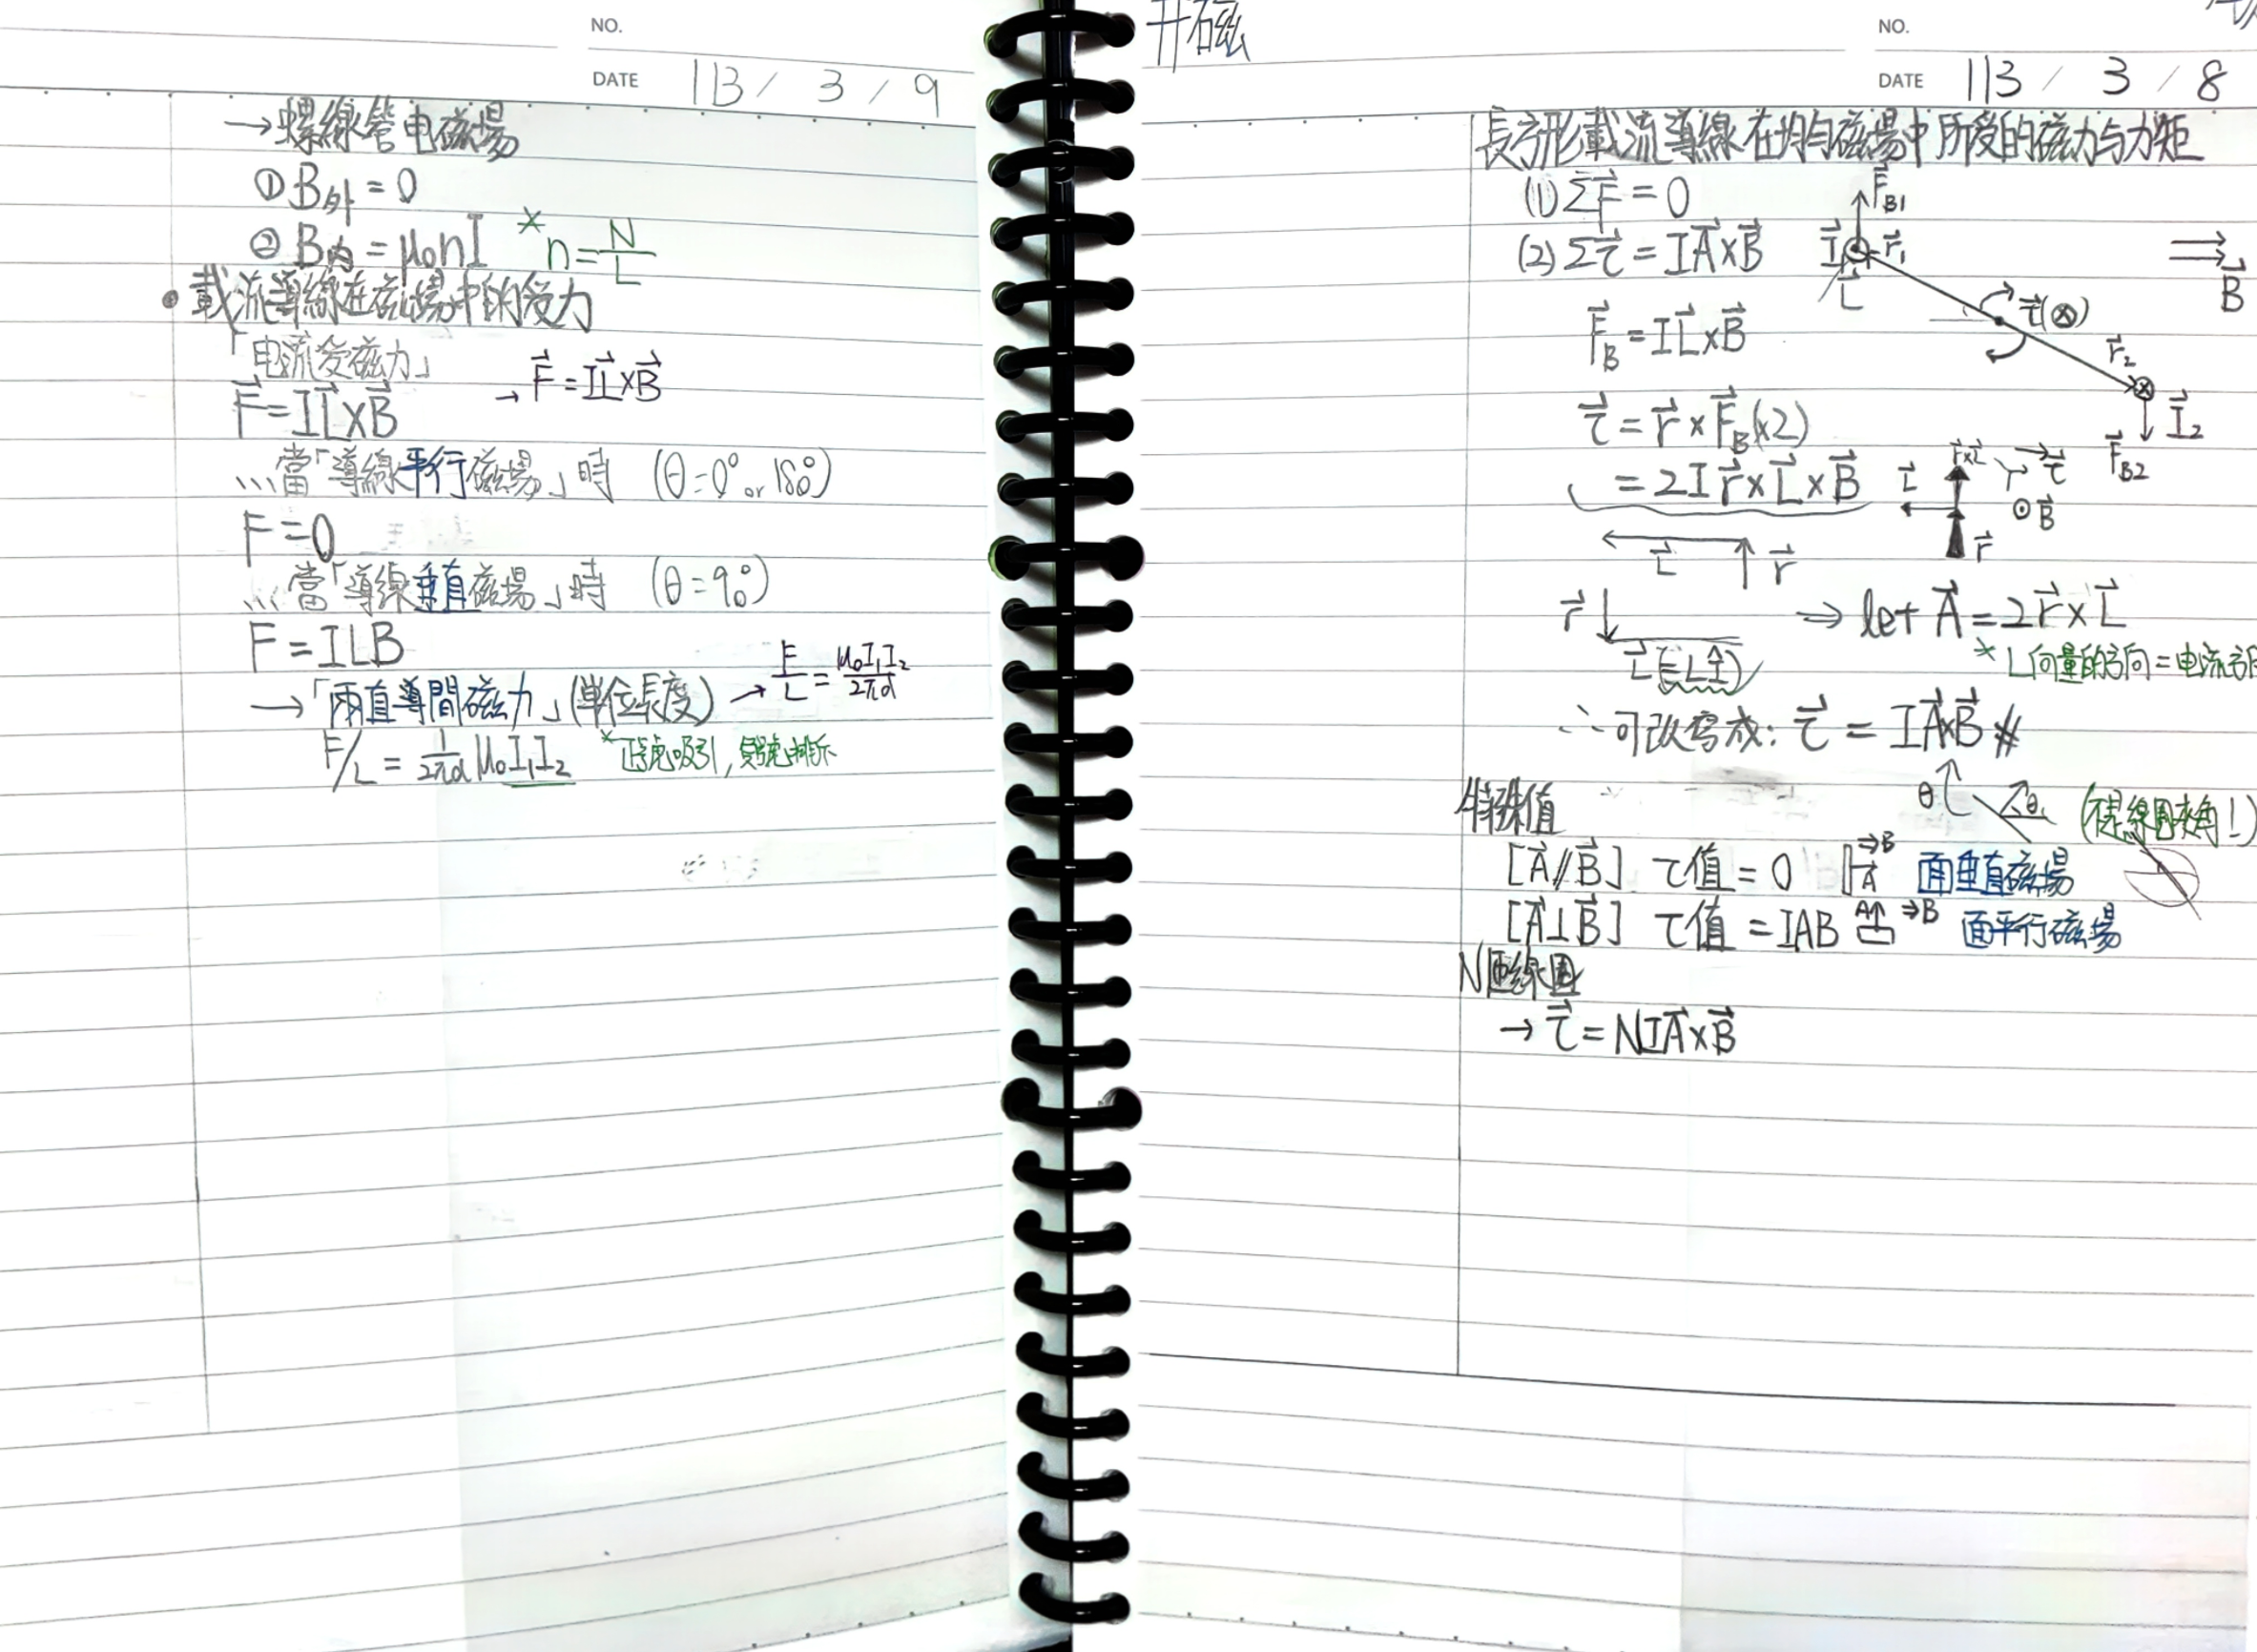 NO.
DATE 113 / 3 / 9
→螺線管电磁場
① B外 = 0
② B内 = μ₀nI *n = N/L
• 載流導線在磁場中的受力
「电流受磁力」
F⃗ = IL⃗×B⃗ → F⃗ = IL⃗×B⃗
∴當「導線平行磁場」時 (θ=0° or 180°)
F = 0
∴當「導線垂直磁場」時 (θ=90°)
F = ILB
→「兩直導間磁力」(單位長度) → F/L = μ₀I₁I₂/2πd
F/L = 1/2πd μ₀I₁I₂ *正號吸引,負號排斥
磁
NO.
DATE 113 / 3 / 8
長方形載流導線在均勻磁場中所受的磁力与力矩
(1) ΣF⃗ = 0
(2) Στ⃗ = IA⃗×B⃗
F⃗B1
I⃗ r⃗₁
L⃗
τ⃗(⊗)
B⃗
r⃗₂
I⃗₂
F⃗B2
F⃗B = IL⃗×B⃗
τ⃗ = r⃗×F⃗B(×2)
= 2Ir⃗×L⃗×B⃗
r⃗×L⃗ τ⃗
L⃗ ⊙B⃗
r⃗
L⃗ r⃗
r⃗ ⇒ let A⃗ = 2r⃗×L⃗
L⃗(=L全)
* L向量的方向=电流方向
∴可改寫成: τ⃗ = IA⃗×B⃗ #
特殊值
θ θ (不是線圈夾角!)
[A⃗∥B⃗] τ值 = 0 A⃗ ⇒B 面垂直磁場
[A⃗⊥B⃗] τ值 = IAB A⇑ ⇒B 面平行磁場
N匝線圈
→ τ⃗ = NIA⃗×B⃗